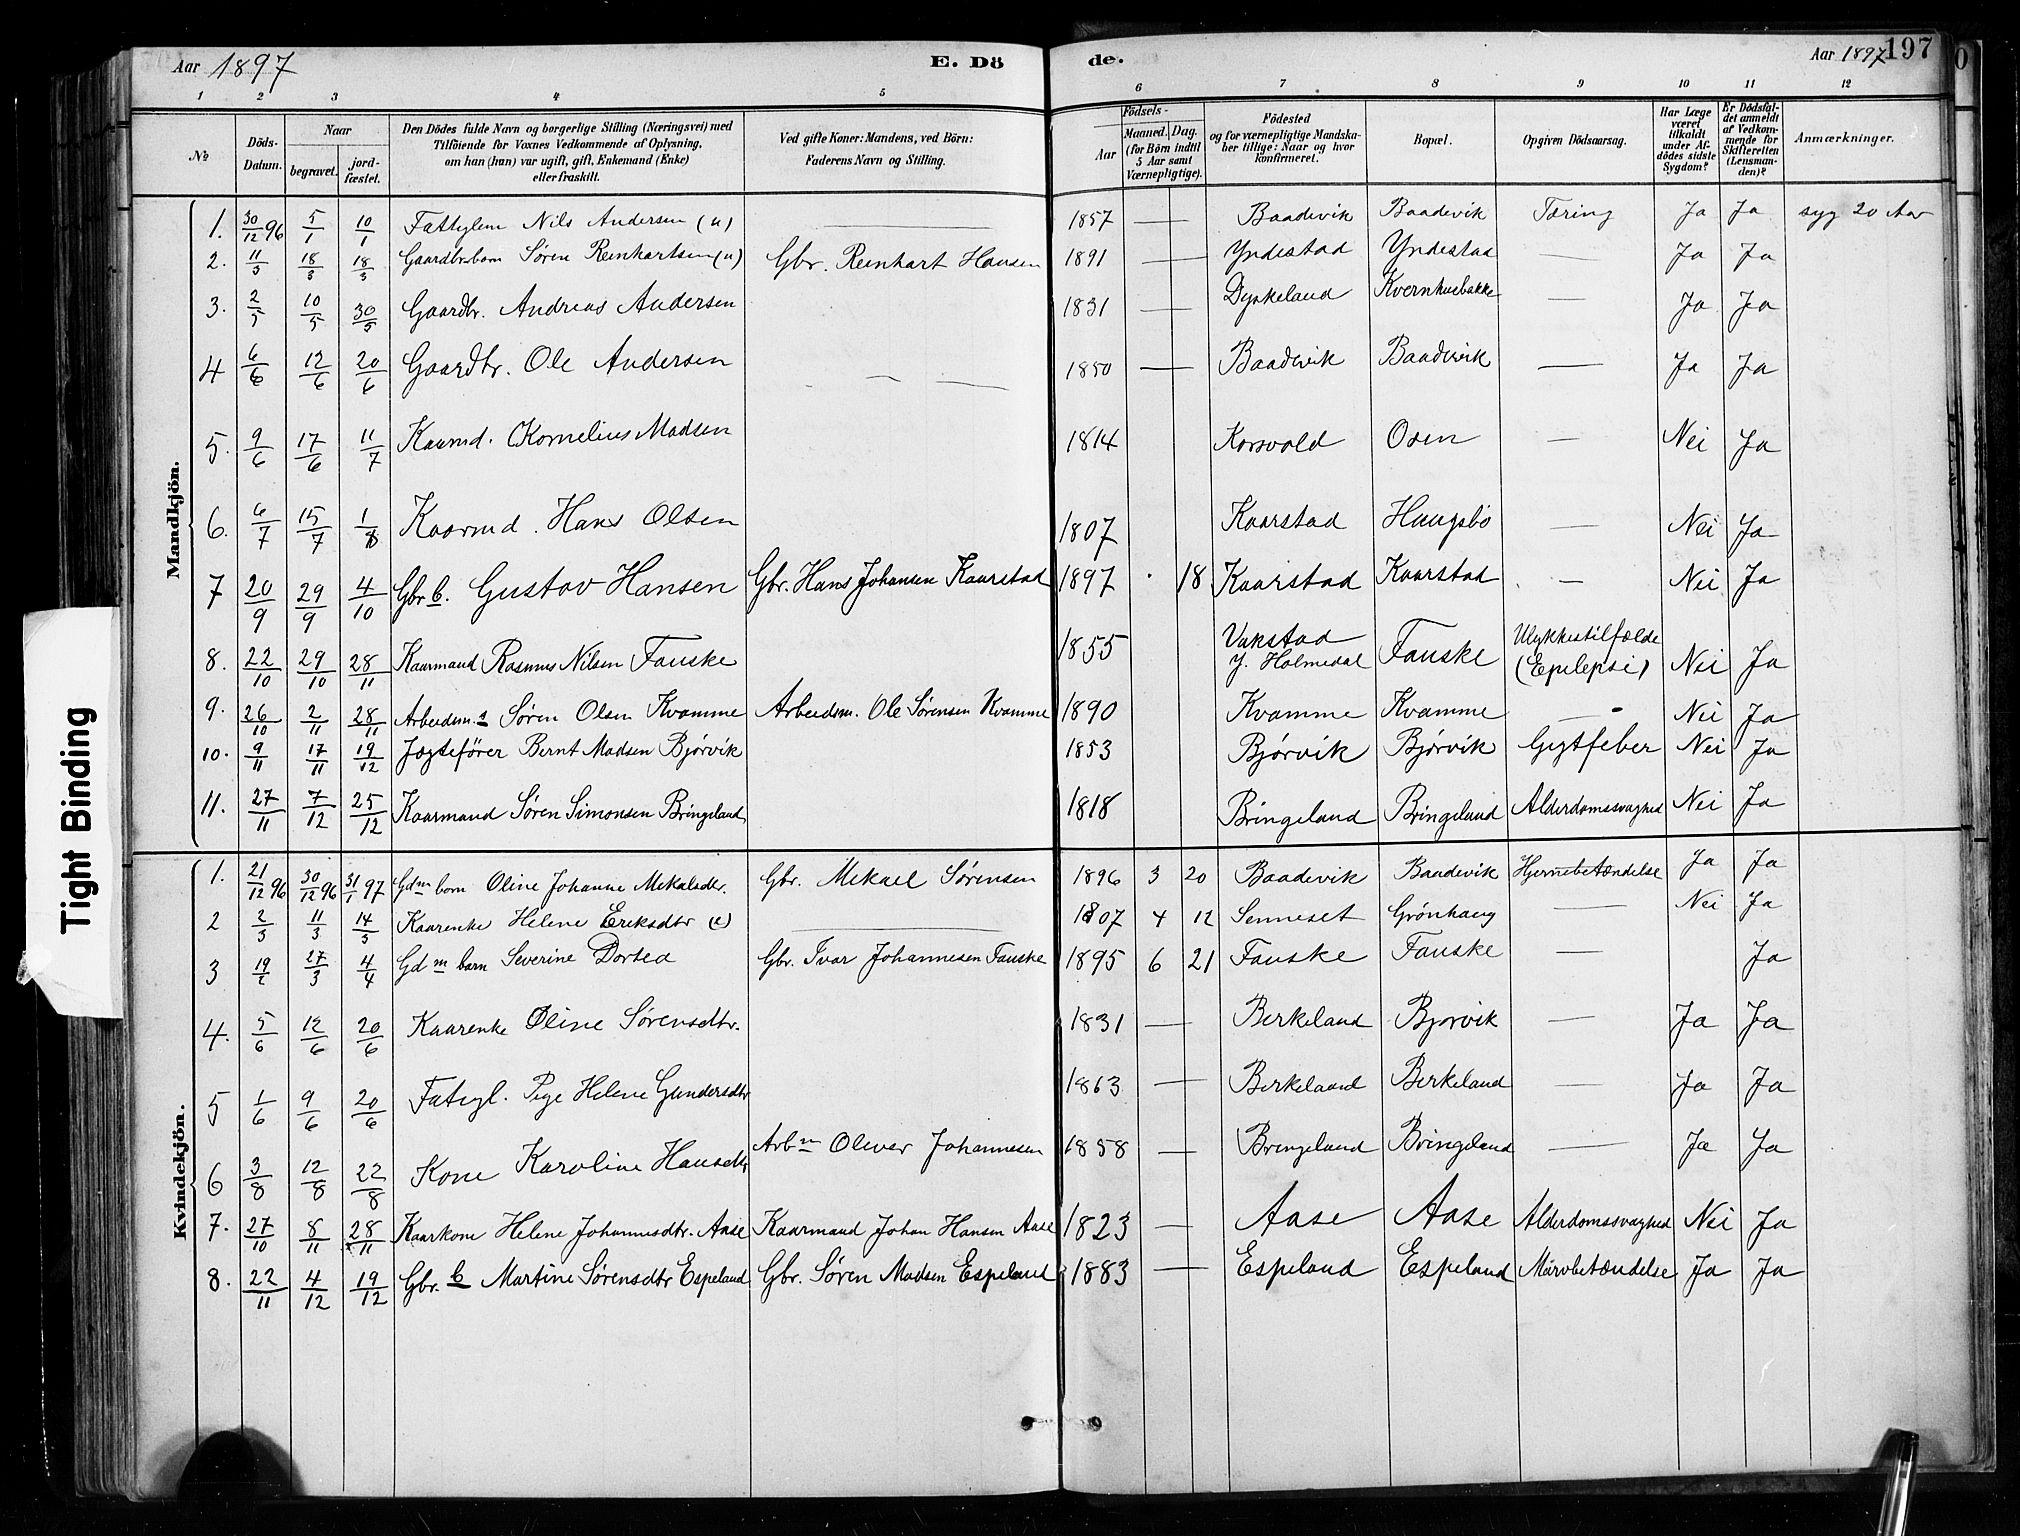 Aar 1897 E. Dö de. Aar 1897 197
1 2 3 4 5 6 7 8 9 10 11 12
№ Döds-Datum. Naar begravet. jordfæstet. Den Dödes fulde Navn og borgerlige Stilling (Næringsvei) med Tilföiende for Voxnes Vedkommende af Oplysning, om han (hun) var ugift, gift, Enkemand (Enke) eller fraskilt. Ved gifte Koner: Mandens, ved Börn: Faderens Navn og Stilling. Födsels- Aar Maaned. Dag. (for Börn indtil 5 Aar samt Værnepligtige). Födested og for værnepligtige Mandskaber tillige: Naar og hvor konfirmeret. Bopæl. Opgiven Dödsaarsag. Har Læge været tilkaldt under Afdödes sidste Sygdom? Er Dödsfaldet anmeldt af Vedkommende for Skifteretten (Lensmanden)? Anmærkninger.
Mandkjön.
1. 30/12 96 5/1 10/1 Fattiglem Nils Andersen (u) — 1857 — Baadevik Baadevik Tæring Ja Ja syg 20 Aar
2. 11/3 18/3 18/3 Gaardbrbarn Søren Reinhartsen (u) Gbr. Reinhart Hansen 1891 — Yndestad Yndestad — Ja Ja
3. 2/5 10/5 30/5 Gaardbr. Andreas Andersen 1831 — Dyskeland Kvernhuebakke — Ja Ja
4 6/6 12/6 20/6 Gaardbr. Ole Andersen — — 1850 — Baadevik Baadevik — Ja Ja
5. 9/6 17/6 11/7 Kaarmd. Kornelius Madsen 1814 Korsvold Osen — Nei Ja
6. 6/7 15/7 1/8 Kaarmd. Hans Olsen 1807 Kaarstad Haugsbö — Nei Ja
7 20/9 29/9 4/10 Gbr. b. Gustav Hansen Gbr. Hans Johansen Kaarstad 1897 18 Kaarstad Kaarstad — Nei Ja
8. 22/10 29/10 28/11 Kaarmand Rasmus Nilsen Fauske 1855 Vakstad Y. Holmedal Fauske Ulykkestilfælde (Epilepsi) Nei Ja
9. 26/10 2/11 28/11 Arbeidsm. s Søren Olsen Kvamme Arbeidsm. Ole Sørensen Kvamme 1890 Kvamme Kvamme — Nei Ja
10. 9/11 17/11 19/12 Jagtefører Bernt Madsen Bjørvik 1853 Bjørvik Bjørvik Gigtfeber Nei Ja
11. 27/11 7/12 25/12 Kaarmand Søren Simonsen Bringeland 1818 Bringeland Bringeland Alderdomssvaghed Nei Ja
Kvindekjön.
1. 21/12 96 30/12 96 31/1 97 Gdm barn Oline Johanne Mekalsdtr. Gbr. Mekael Sørensen 1896 3 20 Baadevik Baadevik Hjernebetændelse Ja Ja
2 2/3 11/3 14/3 Kaarenke Helene Eriksdtr (e) — 1807 4 12 Senneset Grönhaug — Nei Ja
3 19/2 27/3 4/4 Gdm barn Severine Dortea Gbr. Ivar Johannesen Fauske 1895 6 21 Fauske Fauske — Ja
4. 5/6 12/6 20/6 Kaarenke Oline Sørensdtr. 1831 — Birkeland Bjørvik — Ja Ja
5 1/6 9/6 20/6 Fatigl. Pige Helene Gundersdtr 1863 — Birkeland Birkeland — Ja Ja
6 3/8 12/8 22/8 Kone Karoline Hansdtr Arbm Oliver Johannesen 1858 — Bringeland Bringeland — Ja Ja
7. 27/10 8/11 28/11 Kaarkone Helene Johannesdtr. Aase Kaarmand Johan Hansen Aase 1823 — Aase Aase Alderdomssvaghed Nei Ja
8. 22/11 4/12 19/12 Gbr. b Martine Sørensdtr Espeland Gbr. Søren Madsen Espeland 1883 — Espeland Espeland Marvbetændelse Ja Ja
Tight Binding